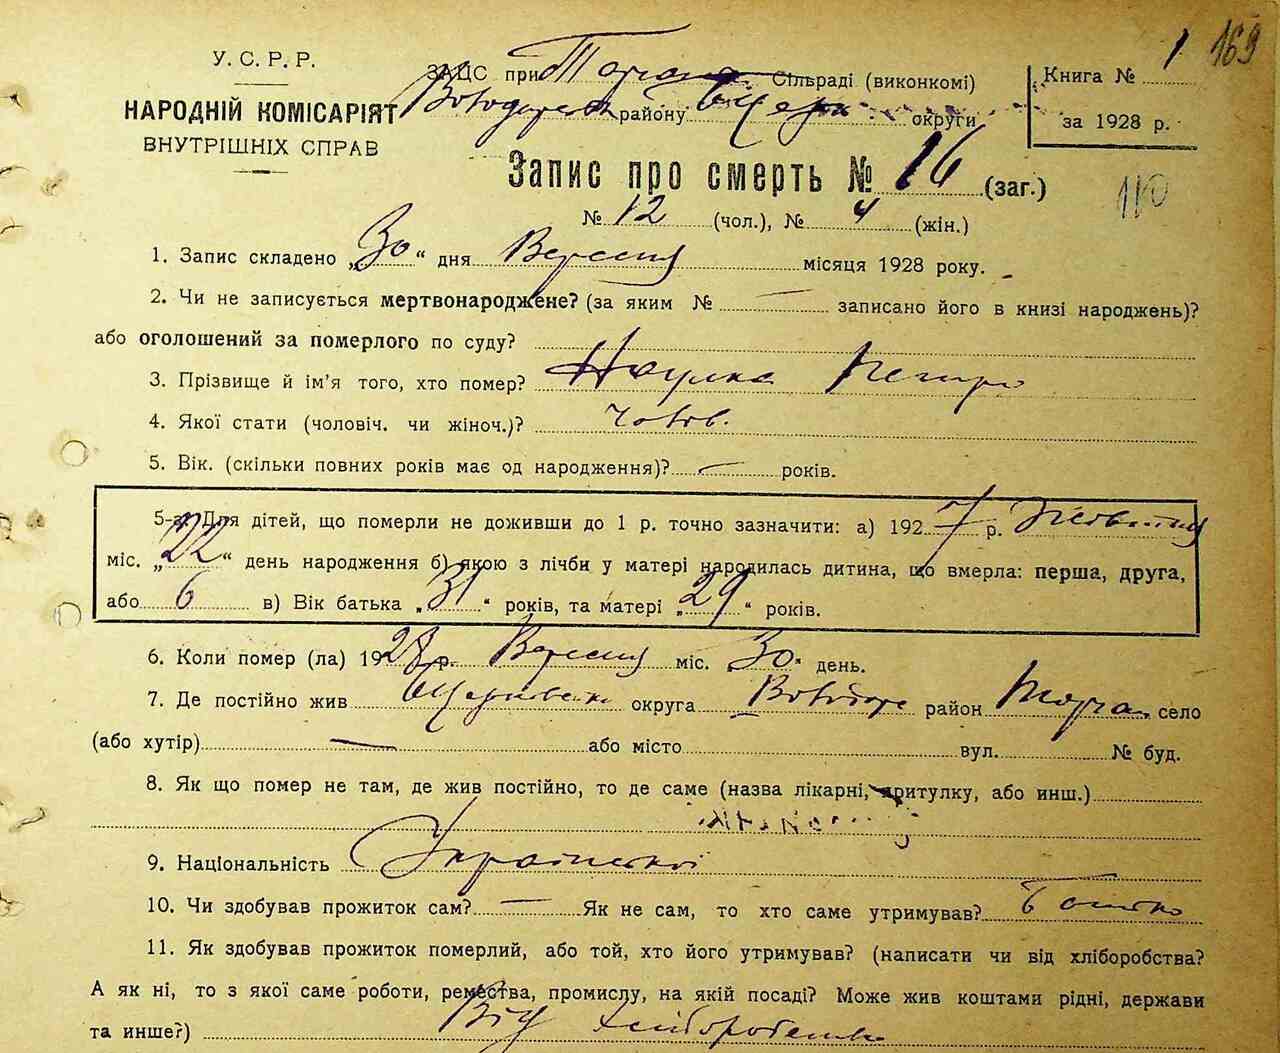 169
У. С. Р. Р.
НАРОДНІЙ КОМІСАРІЯТ
ВНУТРІШНІХ СПРАВ
ЗАЦС при Сільраді (виконкомі)
району округи
Книга № 1
за 1928 р.
Запис про смерть № 16 (заг.)
110
№ 12 (чол.), № 4 (жін.)
1. Запис складено „30“ дня Вересня місяця 1928 року.
2. Чи не записується мертвонароджене? (за яким № — записано його в книзі народжень)?
або оголошений за померлого по суду?
3. Прізвище й ім'я того, хто помер? Наумка Петро
4. Якої статі (чоловіч. чи жіноч.)? чолов.
5. Вік. (скільки повних років має од народження)? — років.
5-а. Для дітей, що померли не доживши до 1 р. точно зазначити: а) 1927 р.
міс. „22“ день народження б) якою з лічби у матері народилась дитина, що вмерла: перша, друга,
або 6 в) Вік батька „31“ років, та матері „29“ років.
6. Коли помер (ла) 1928 р. Вересня міс. „30“ день.
7. Де постійно жив округа район село
(або хутір) — або місто вул. № буд.
8. Як що помер не там, де жив постійно, то де саме (назва лікарні, притулку, або инш.)
9. Національність Української
10. Чи здобував прожиток сам? — Як не сам, то хто саме утримував? батько
11. Як здобував прожиток померлий, або той, хто його утримував? (написати чи від хліборобства?
А як ні, то з якої саме роботи, ремества, промислу, на якій посаді? Може жив коштами рідні, держави
та инше?) Від хліборобства